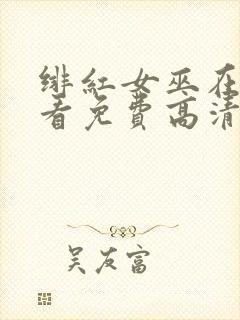 绯红女巫在
看免费高清
吴友富